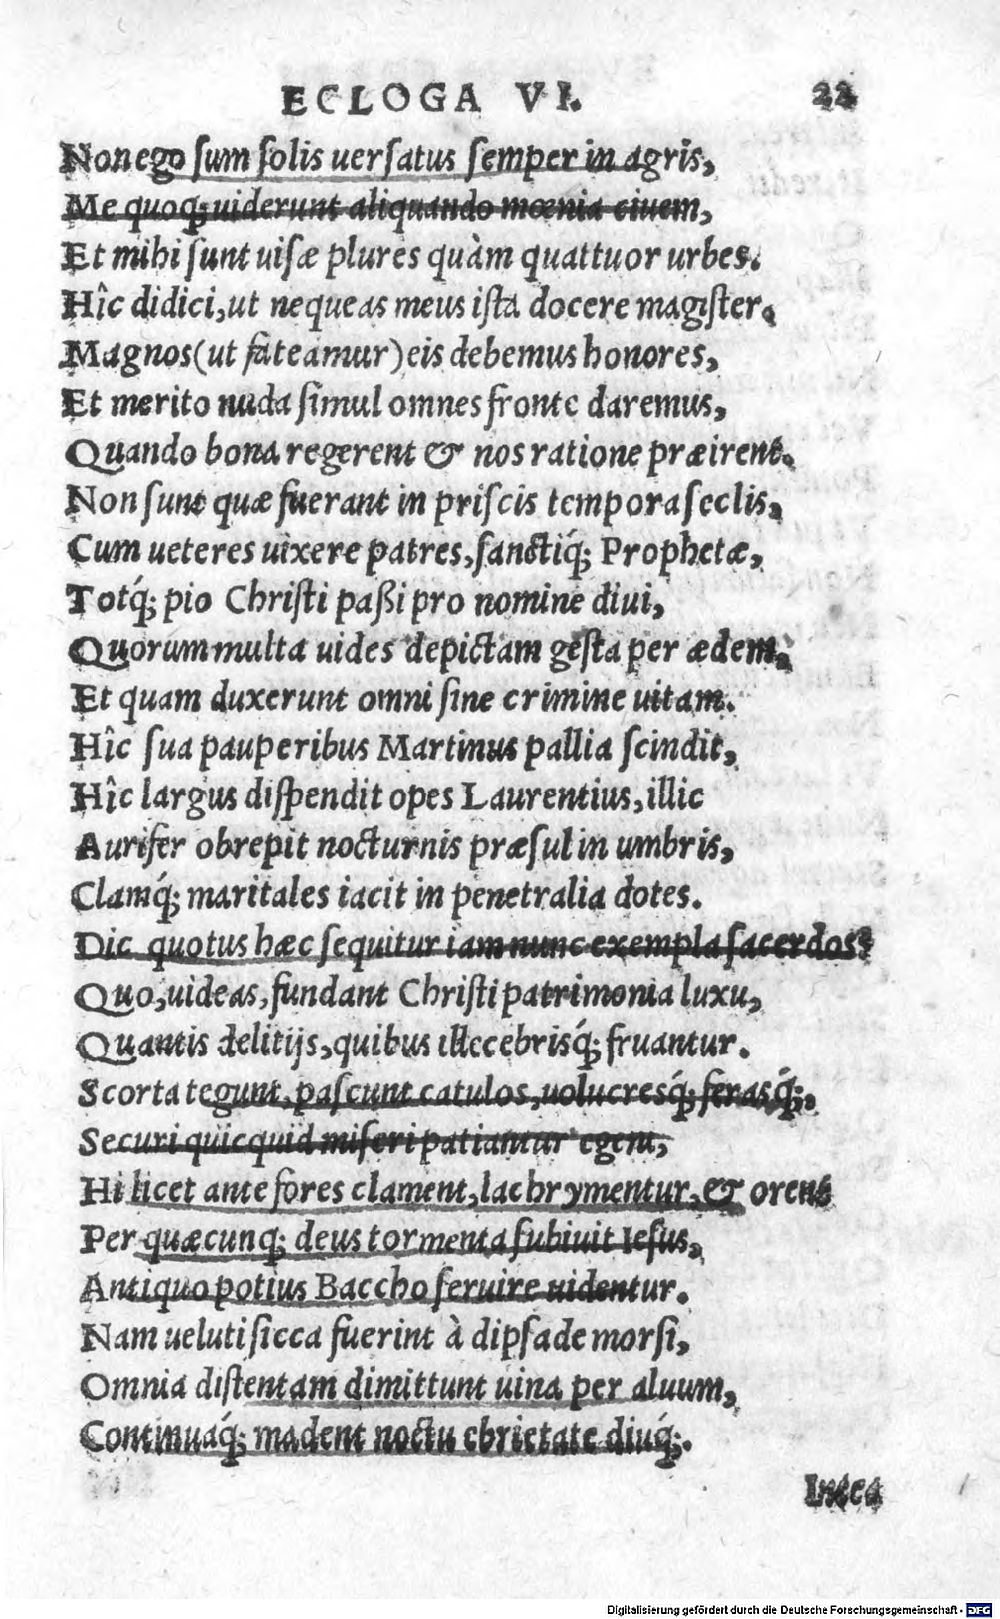 ECLOGA VI. 22
Non ego ſum ſolis uerſatus ſemper in agris,
Me quoq́; uiderunt aliquando mœnia ciuem,
Et mihi ſunt uiſæ plures quàm quattuor urbes.
Hîc didici, ut nequeas meus iſta docere magiſter.
Magnos (ut fateamur) eis debemus honores,
Et merito nuda ſimul omnes fronte daremus,
Quando bona regerent & nos ratione præirent.
Non ſunt quæ fuerant in priſcis tempora ſeclis,
Cum ueteres uixere patres, ſanctiq́; Prophetæ,
Totq́; pio Chriſti paßi pro nomine diui,
Quorum multa uides depictam geſta per ædem,
Et quam duxerunt omni ſine crimine uitam.
Hîc ſua pauperibus Martinus pallia ſcindit,
Hîc largus diſpendit opes Laurentius, illic
Aurifer obrepit nocturnis præſul in umbris,
Clamq́; maritales iacit in penetralia dotes.
Dic quotus hæc ſequitur iam nunc exempla ſacerdos?
Quo, uideas, fundant Chriſti patrimonia luxu,
Quantis delitijs, quibus illecebrisq́; fruantur.
Scorta tegunt, paſcunt catulos, uolucresq́; ferasq́;,
Securi quicquid miſeri patiantur egeni,
Hi licet ante fores clament, lachrymentur, & orent
Per quæcunq; deus tormenta ſubiuit Ieſus,
Antiquo potius Baccho ſeruire uidentur.
Nam ueluti ſicca fuerint à dipſade morſi,
Omnia diſtentam dimittunt uina per aluum,
Continuaq́; madent noctu ebrietate diuq́;.
Intea
Digitalisierung gefördert durch die Deutsche Forschungsgemeinschaft - DFG